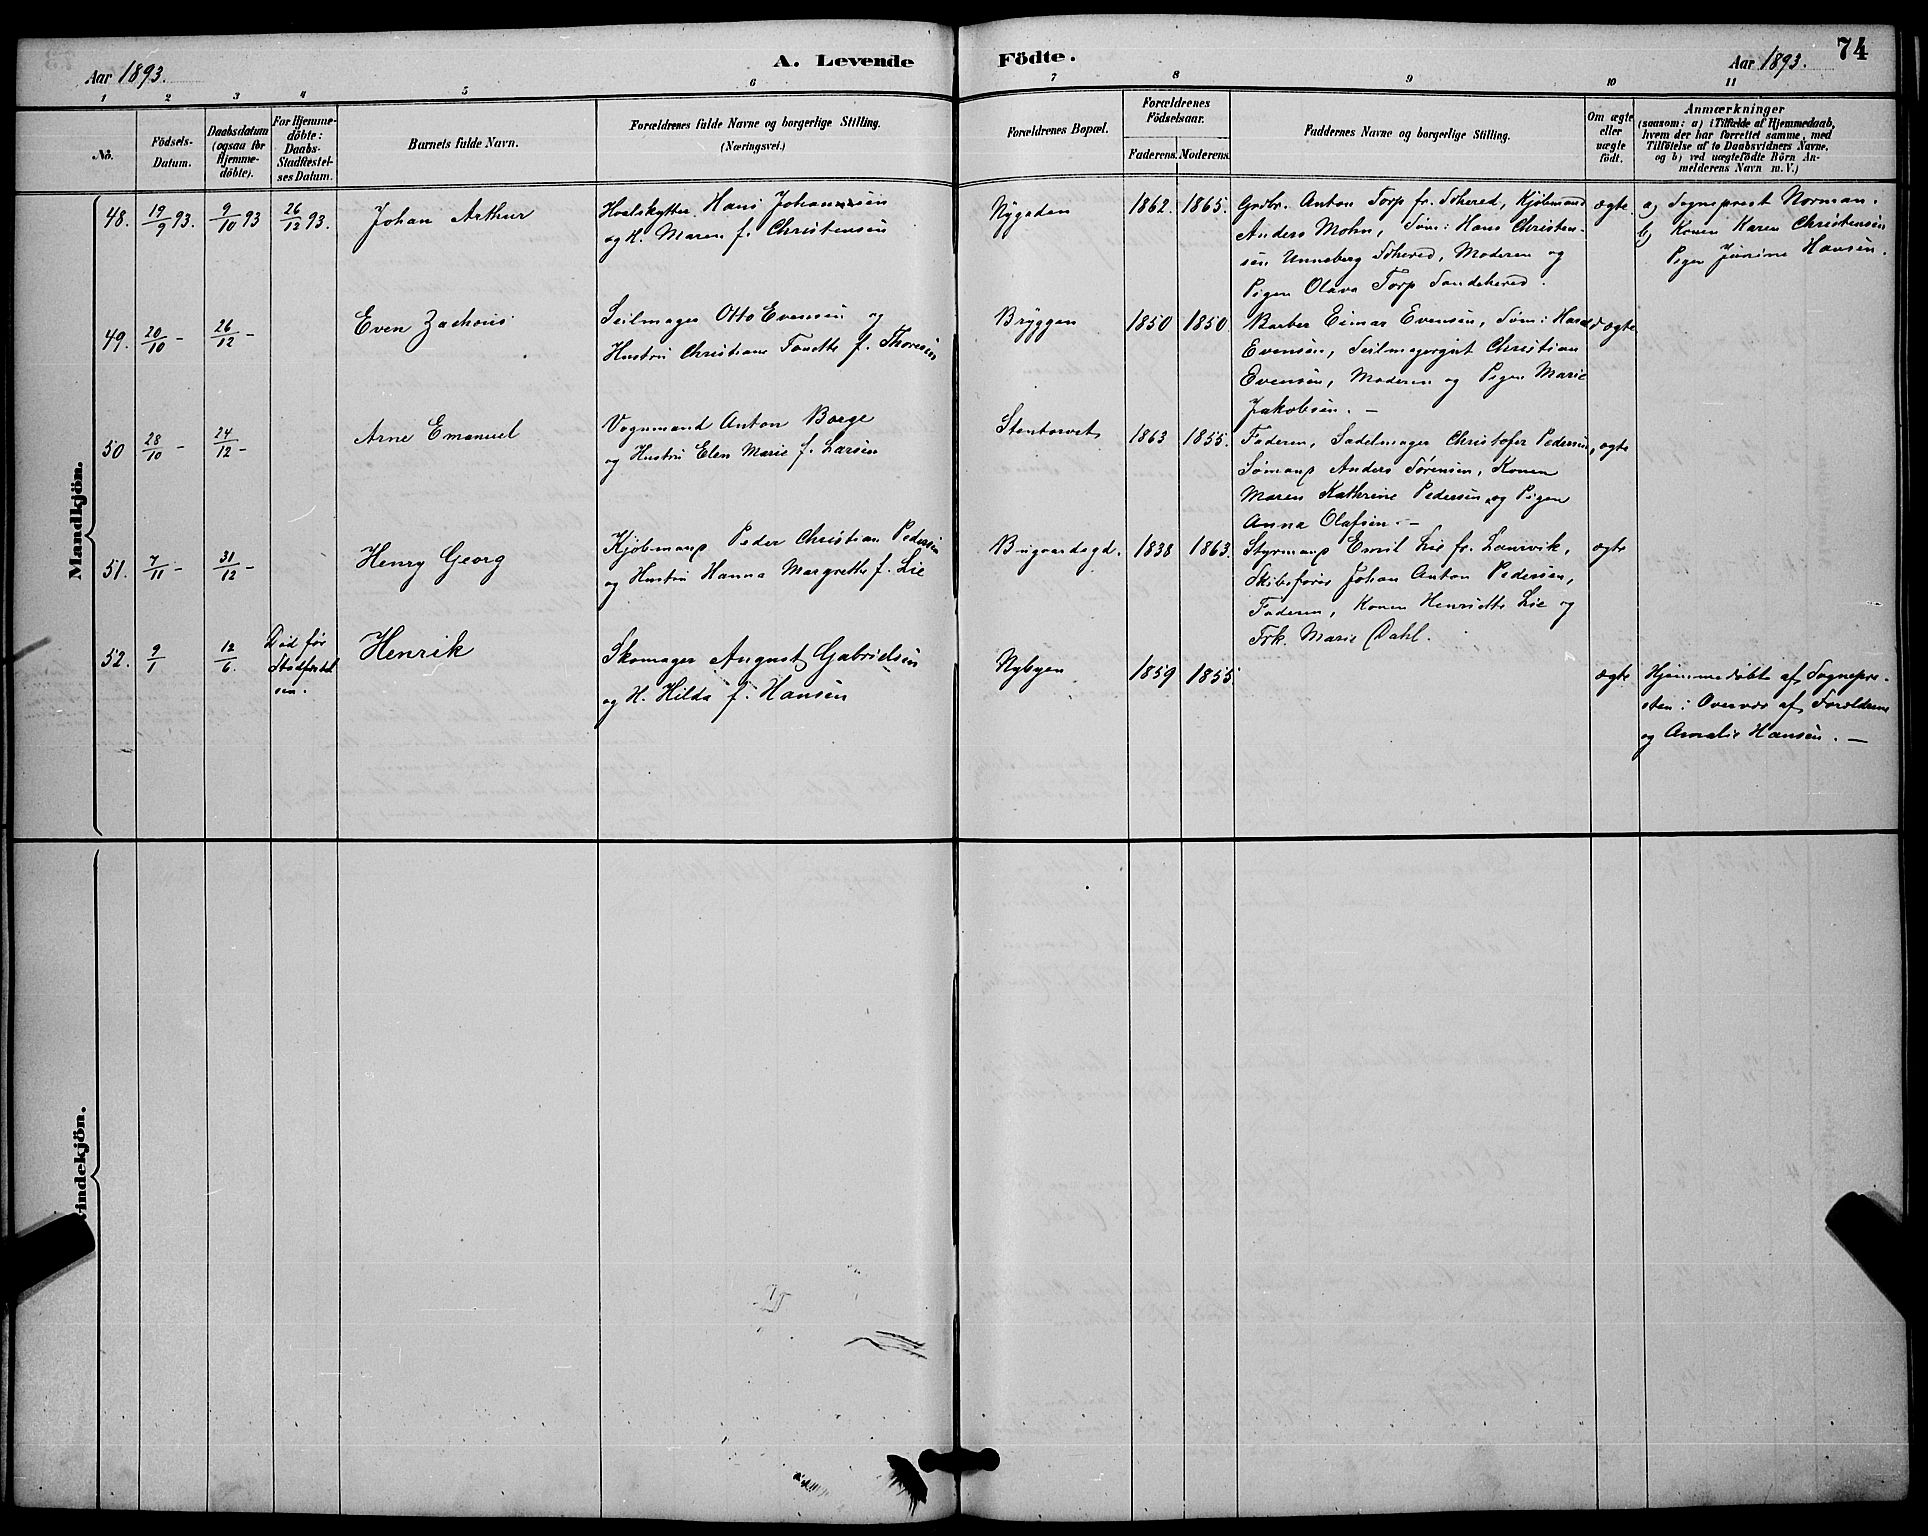 Aar 1893.
A. Levende Födte.
Aar 1893.
74
1 2 3 4 5 6 7 8 9 10 11
No.
Födsels-
Datum.
Daabsdatum
(ogsaa for
Hjemme-
döbte).
For Hjemme-
döbte:
Daabs-
Stadfæstel-
ses Datum.
Barnets fulde Navn.
Forældrenes fulde Navne og borgerlige Stilling.
(Næringsvei.)
Forældrenes Bopæl.
Forældrenes
Födselsaar.
Faderens. Moderens.
Faddernes Navne og borgerlige Stilling.
Om ægte
eller
uægte
födt.
Anmærkninger
(saasom: a) i Tilfælde af Hjemmedaab,
hvem der har forrettet samme, med
Tilföielse af to Daabsvidners Navne,
og b) ved uægtefödte Börn An-
melderens Navn m. V.)
Mandkjön.
48. 19/9 93. 9/10 93 26/12 93. Johan Arthur
Hvalskytter Hans Johannsen
og H. Maren f. Christensen
Nygaden 1862. 1865.
Grdbr. Anton Torp fr. Shered, Kjøbmand
Anders Mohn, Søm: Hans Christen-
sen Unneberg Shered, Moderen og
Pigen Olava Torp Sandehered.
ægte.
a) Sogneprest Norman.
b) Konen Karen Christensen
Pigen Janine Hansen.
49. 20/10 - 26/12 - Even Zachous
Seilmager Otto Evensen og
Hustru Christiane Tonette f. Thoresen
Bryggen 1850 1850
Barber Eimar Evensen, Søm: Harald
Evensen, Seilmagergut Christian
Evensen, Moderen og Pigen Marie
Jakobsen. -
ægte
50 28/10 - 24/12 - Arne Emanuel
Vognmand Anton Borge
og Hustru Elen Marie f. Larsen
Stentorvet 1863 1855.
Faderen, Sadelmager Christofer Pedersen,
Sømand Anders Sørensen, Konen
Maren Kathrine Pedersen og Pigen
Anna Olafsen. -
ægte
51. 7/11 - 31/12 - Henry Georg
Kjøbmand Peder Christian Pedersen
og Hustru Hanna Margrethe f. Lie
Brigaardsgd. 1838 1863.
Styrmand Emil Lie fr. Laurvik,
Skibsfører Johan Anton Pedersen,
Faderen, Konen Henriette Lie og
Frk. Marie Dahl.
ægte
52. 9/1 12/6. Død før
Stadfæstel
sen. Henrik
Skomager August Gabrielsen
og H. Hilda f. Hansen
Nybyen 1859 1855
ægte
Hjemmedøbt af Sognepre-
sten i Overvær af Forældrene
og Amalie Hansen. -
vindekjön.